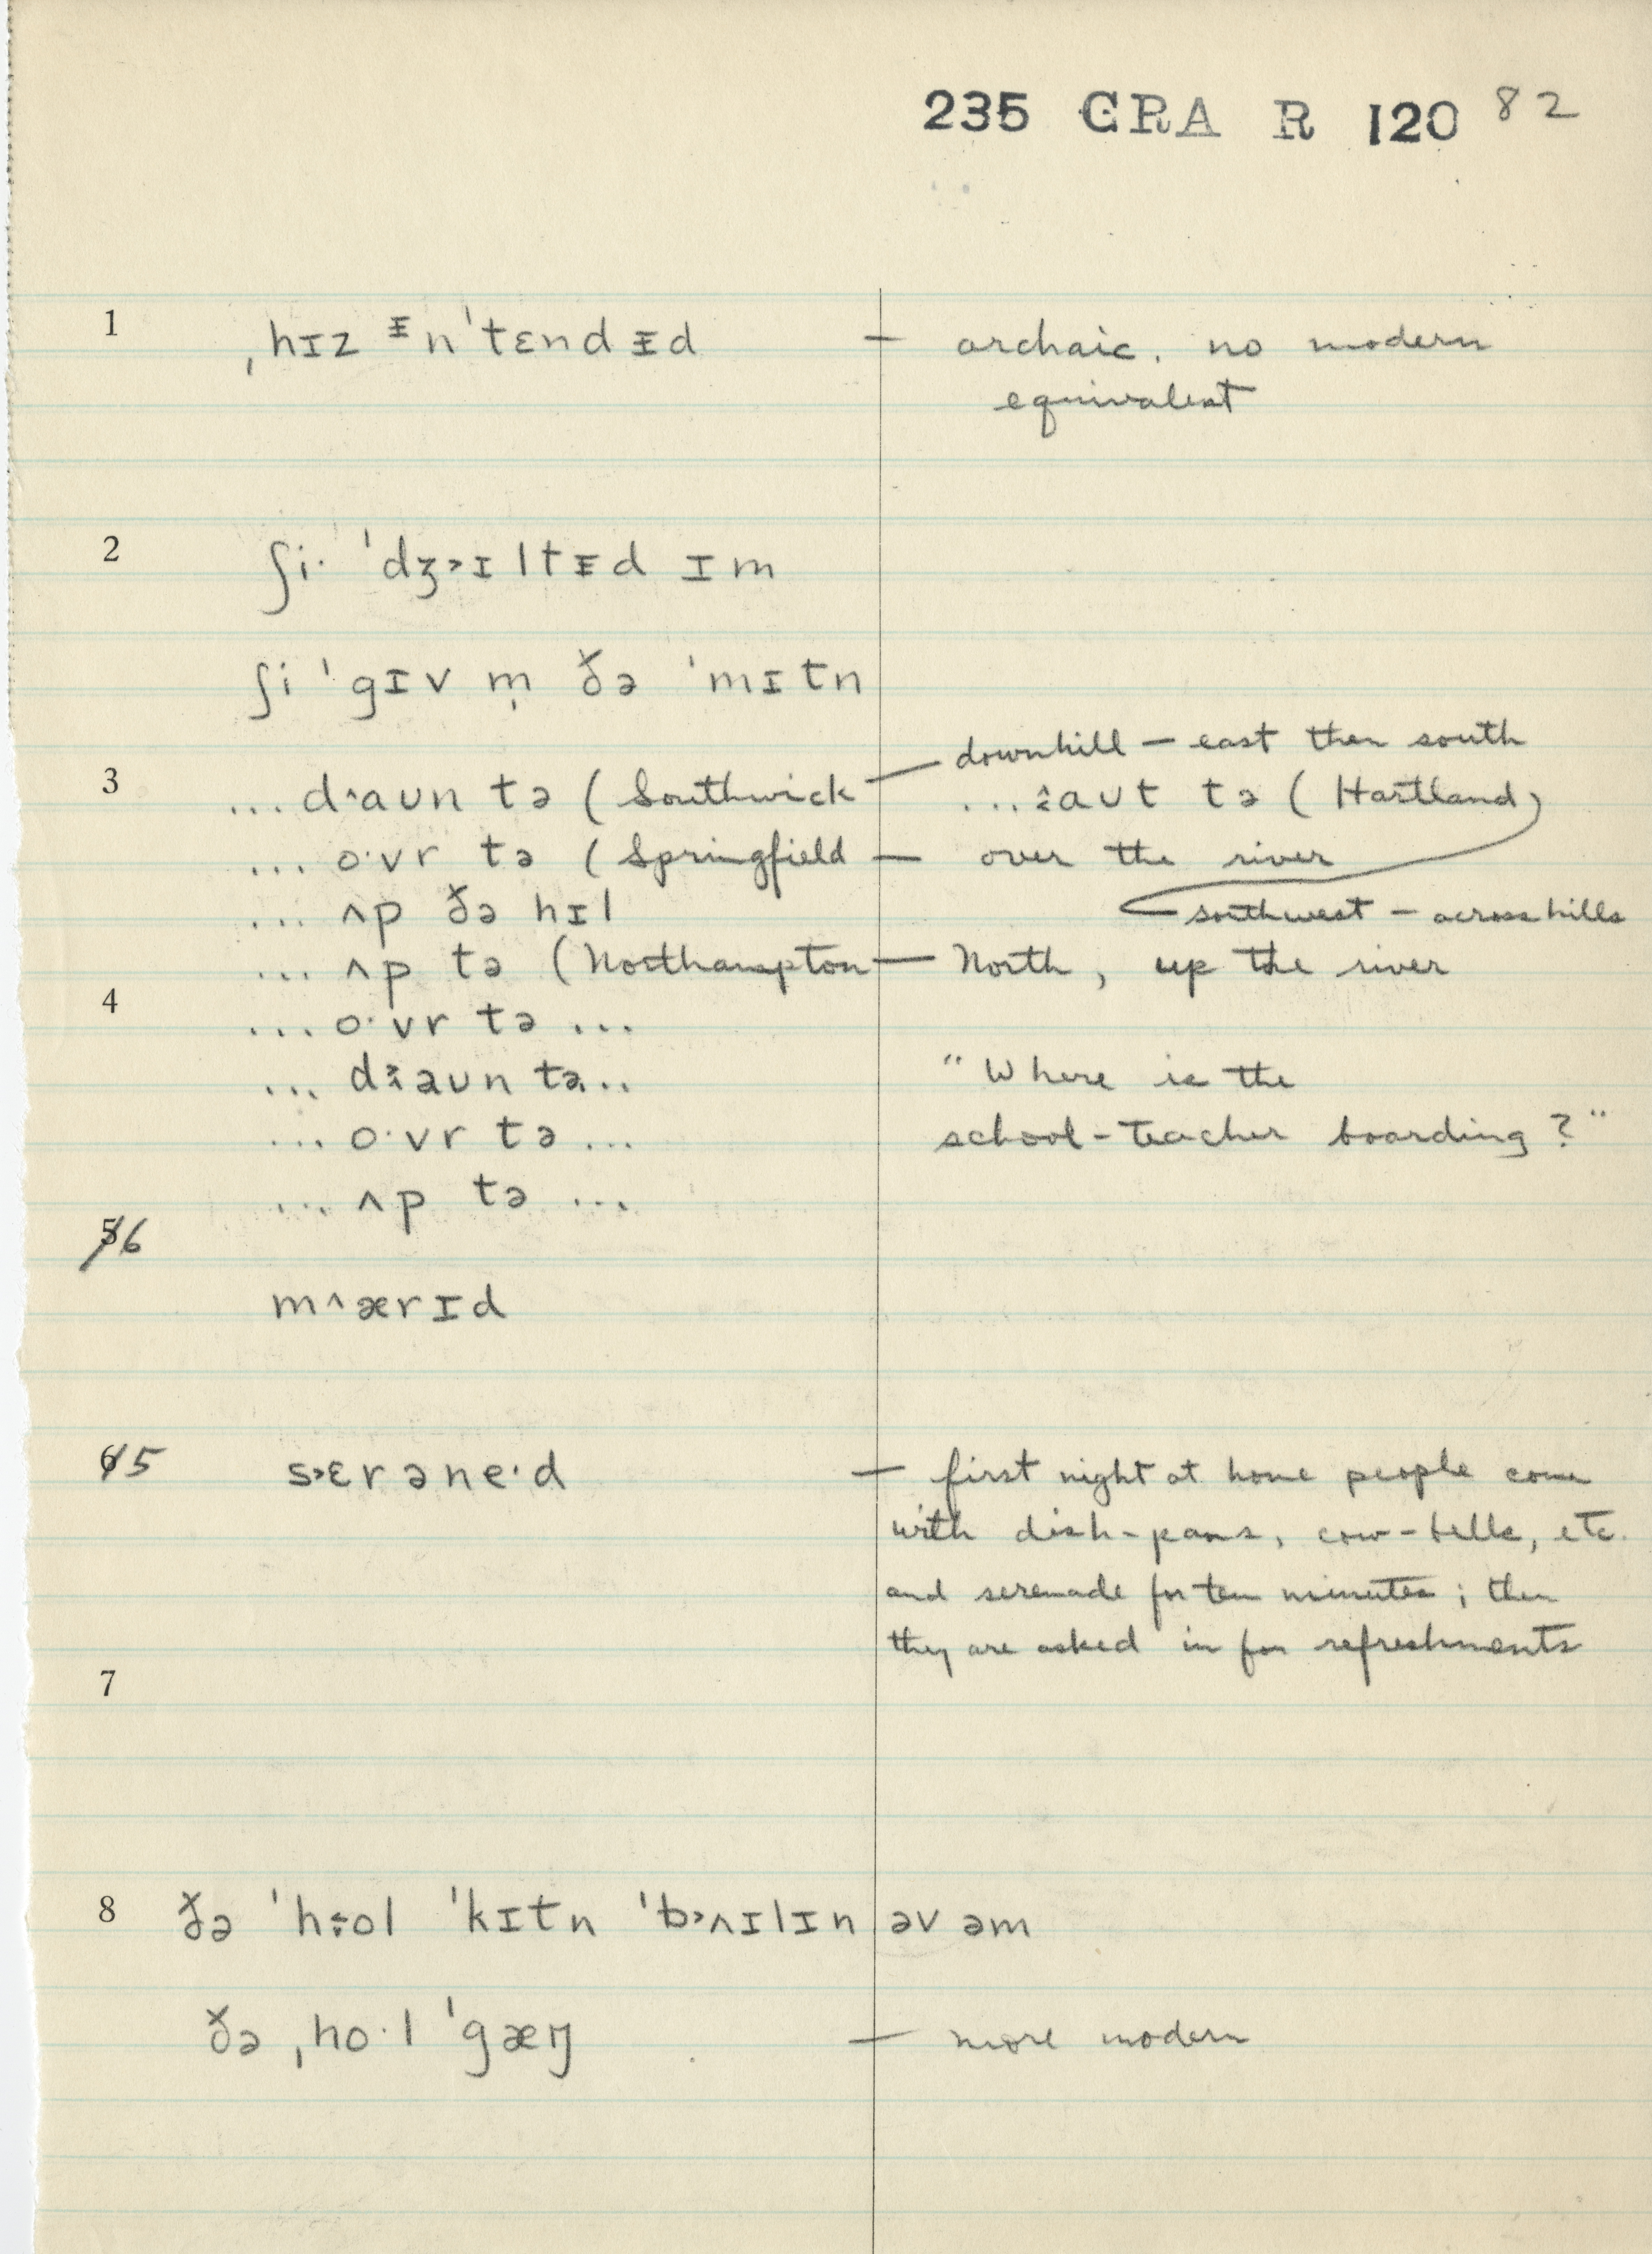 235 GRA R 120 82
1 ˌhɪz ᵻn'tɛndᵻd — archaic. no modern
equivalent
2 ʃi· 'dʒ˃ɪltᵻd ɪm
ʃi 'gɪv m̩ ðə 'mɪtn
downhill — east then south
3 ...d˄aʊn tə (Southwick — ...aʊt tə (Hartland)
... o·vr tə (Springfield — over the river
... ʌp ðə hɪl southwest — across hills
... ʌp tə (Northampton — North, up the river
4 ... o·vr tə ...
... daʊn tə.. "Where is the
... o·vr tə ... school-teacher boarding?"
... ʌp tə ...
5 6
m˄ærɪd
6 5 s˃ɛrəne·d — first night at home people come
with dish-pans, cow-bells, etc.
and serenade for ten minutes; then
they are asked in for refreshments
7
8 ðə 'hol 'kɪtn 'b˃ʌɪlɪn əv əm
ðə ˌho·l 'gæŋ — more modern